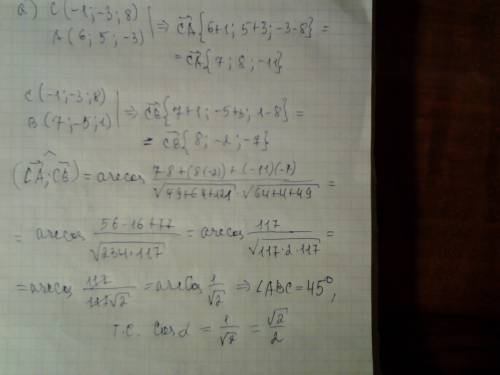 a) C(-1;-3;8) | ⇒ \vec{CA}{6+1; 5+3; -3-8} =
A(6; 5; -3) | = \vec{CA}{7; 8; -11}
C(-1;-3;8) | ⇒ \vec{CB}{7+1; -5+3; 1-8} =
B(7;-5;1) | = \vec{CB}{8; -2; -7}
(\vec{CA};^\vec{CB}) = arccos \frac{7·8+(8(-2))+(-11)(-7)}{\sqrt{49+64+121}·\sqrt{64+4+49}} =
= arccos \frac{56-16+77}{\sqrt{234·117}} = arccos \frac{117}{\sqrt{117·2·117}} =
= arccos \frac{117}{117\sqrt{2}} = arccos \frac{1}{\sqrt{2}} ⇒ ∠ABC = 45°,
т.с. cos α = \frac{1}{\sqrt{2}} = \frac{\sqrt{2}}{2}